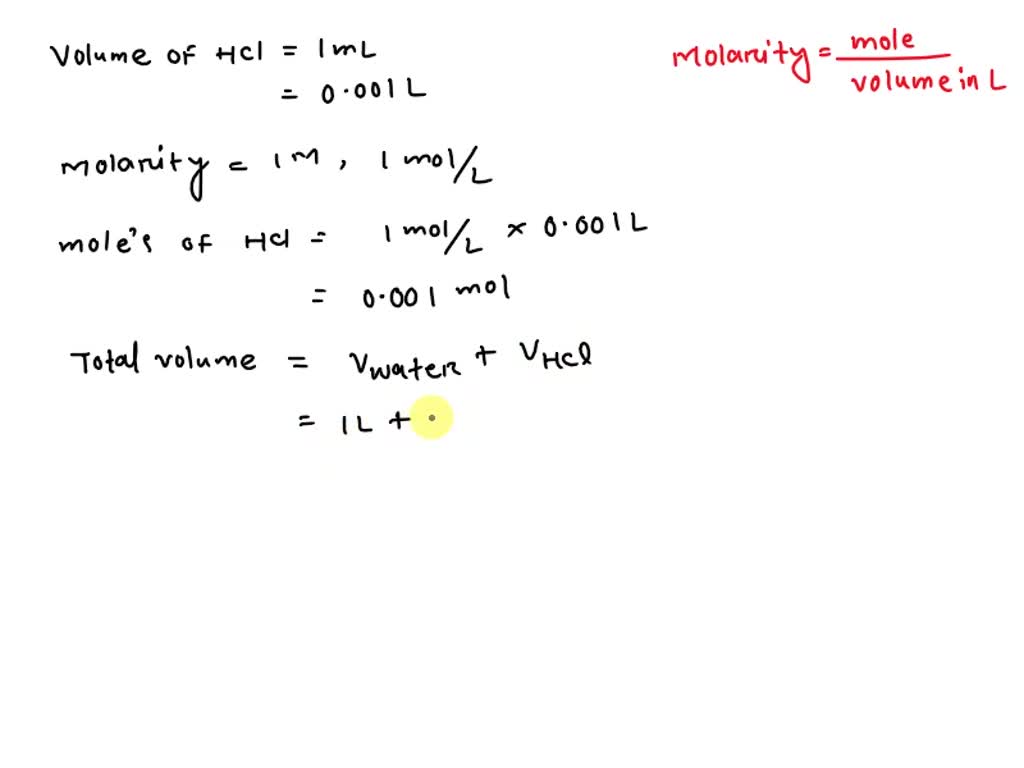 Volume of HCl = 1mL
= 0.001 L
Molarity = mole / volume in L
Molarity = 1M, 1 mol/L
mole's of HCl = 1 mol/L × 0.001 L
= 0.001 mol
Total volume = Vwater + VHCl
= 1L + .